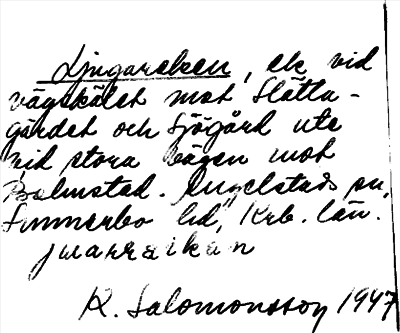 Ljugareken, ek vid
vägskälet mot Slätta-
gärdet och Sjögård ute
vid stora vägen mot
Bolmstad. Angelstads sn,
Sunnerbo hd, Krb. län.
juarraikan
K. Salomonsson 1947